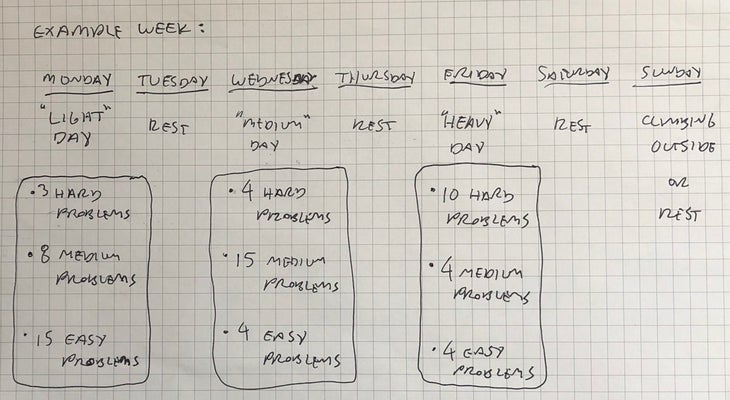 EXAMPLE WEEK:
MONDAY TUESDAY WEDNESDAY THURSDAY FRIDAY SATURDAY SUNDAY
"LIGHT" DAY
REST
"MEDIUM" DAY
REST
"HEAVY" DAY
REST
CLIMBING
OUTSIDE
OR
REST
• 3 HARD
PROBLEMS
• 8 MEDIUM
PROBLEMS
• 15 EASY
PROBLEMS
• 4 HARD
PROBLEMS
• 15 MEDIUM
PROBLEMS
• 4 EASY
PROBLEMS
• 10 HARD
PROBLEMS
• 4 MEDIUM
PROBLEMS
• 4 EASY
PROBLEMS